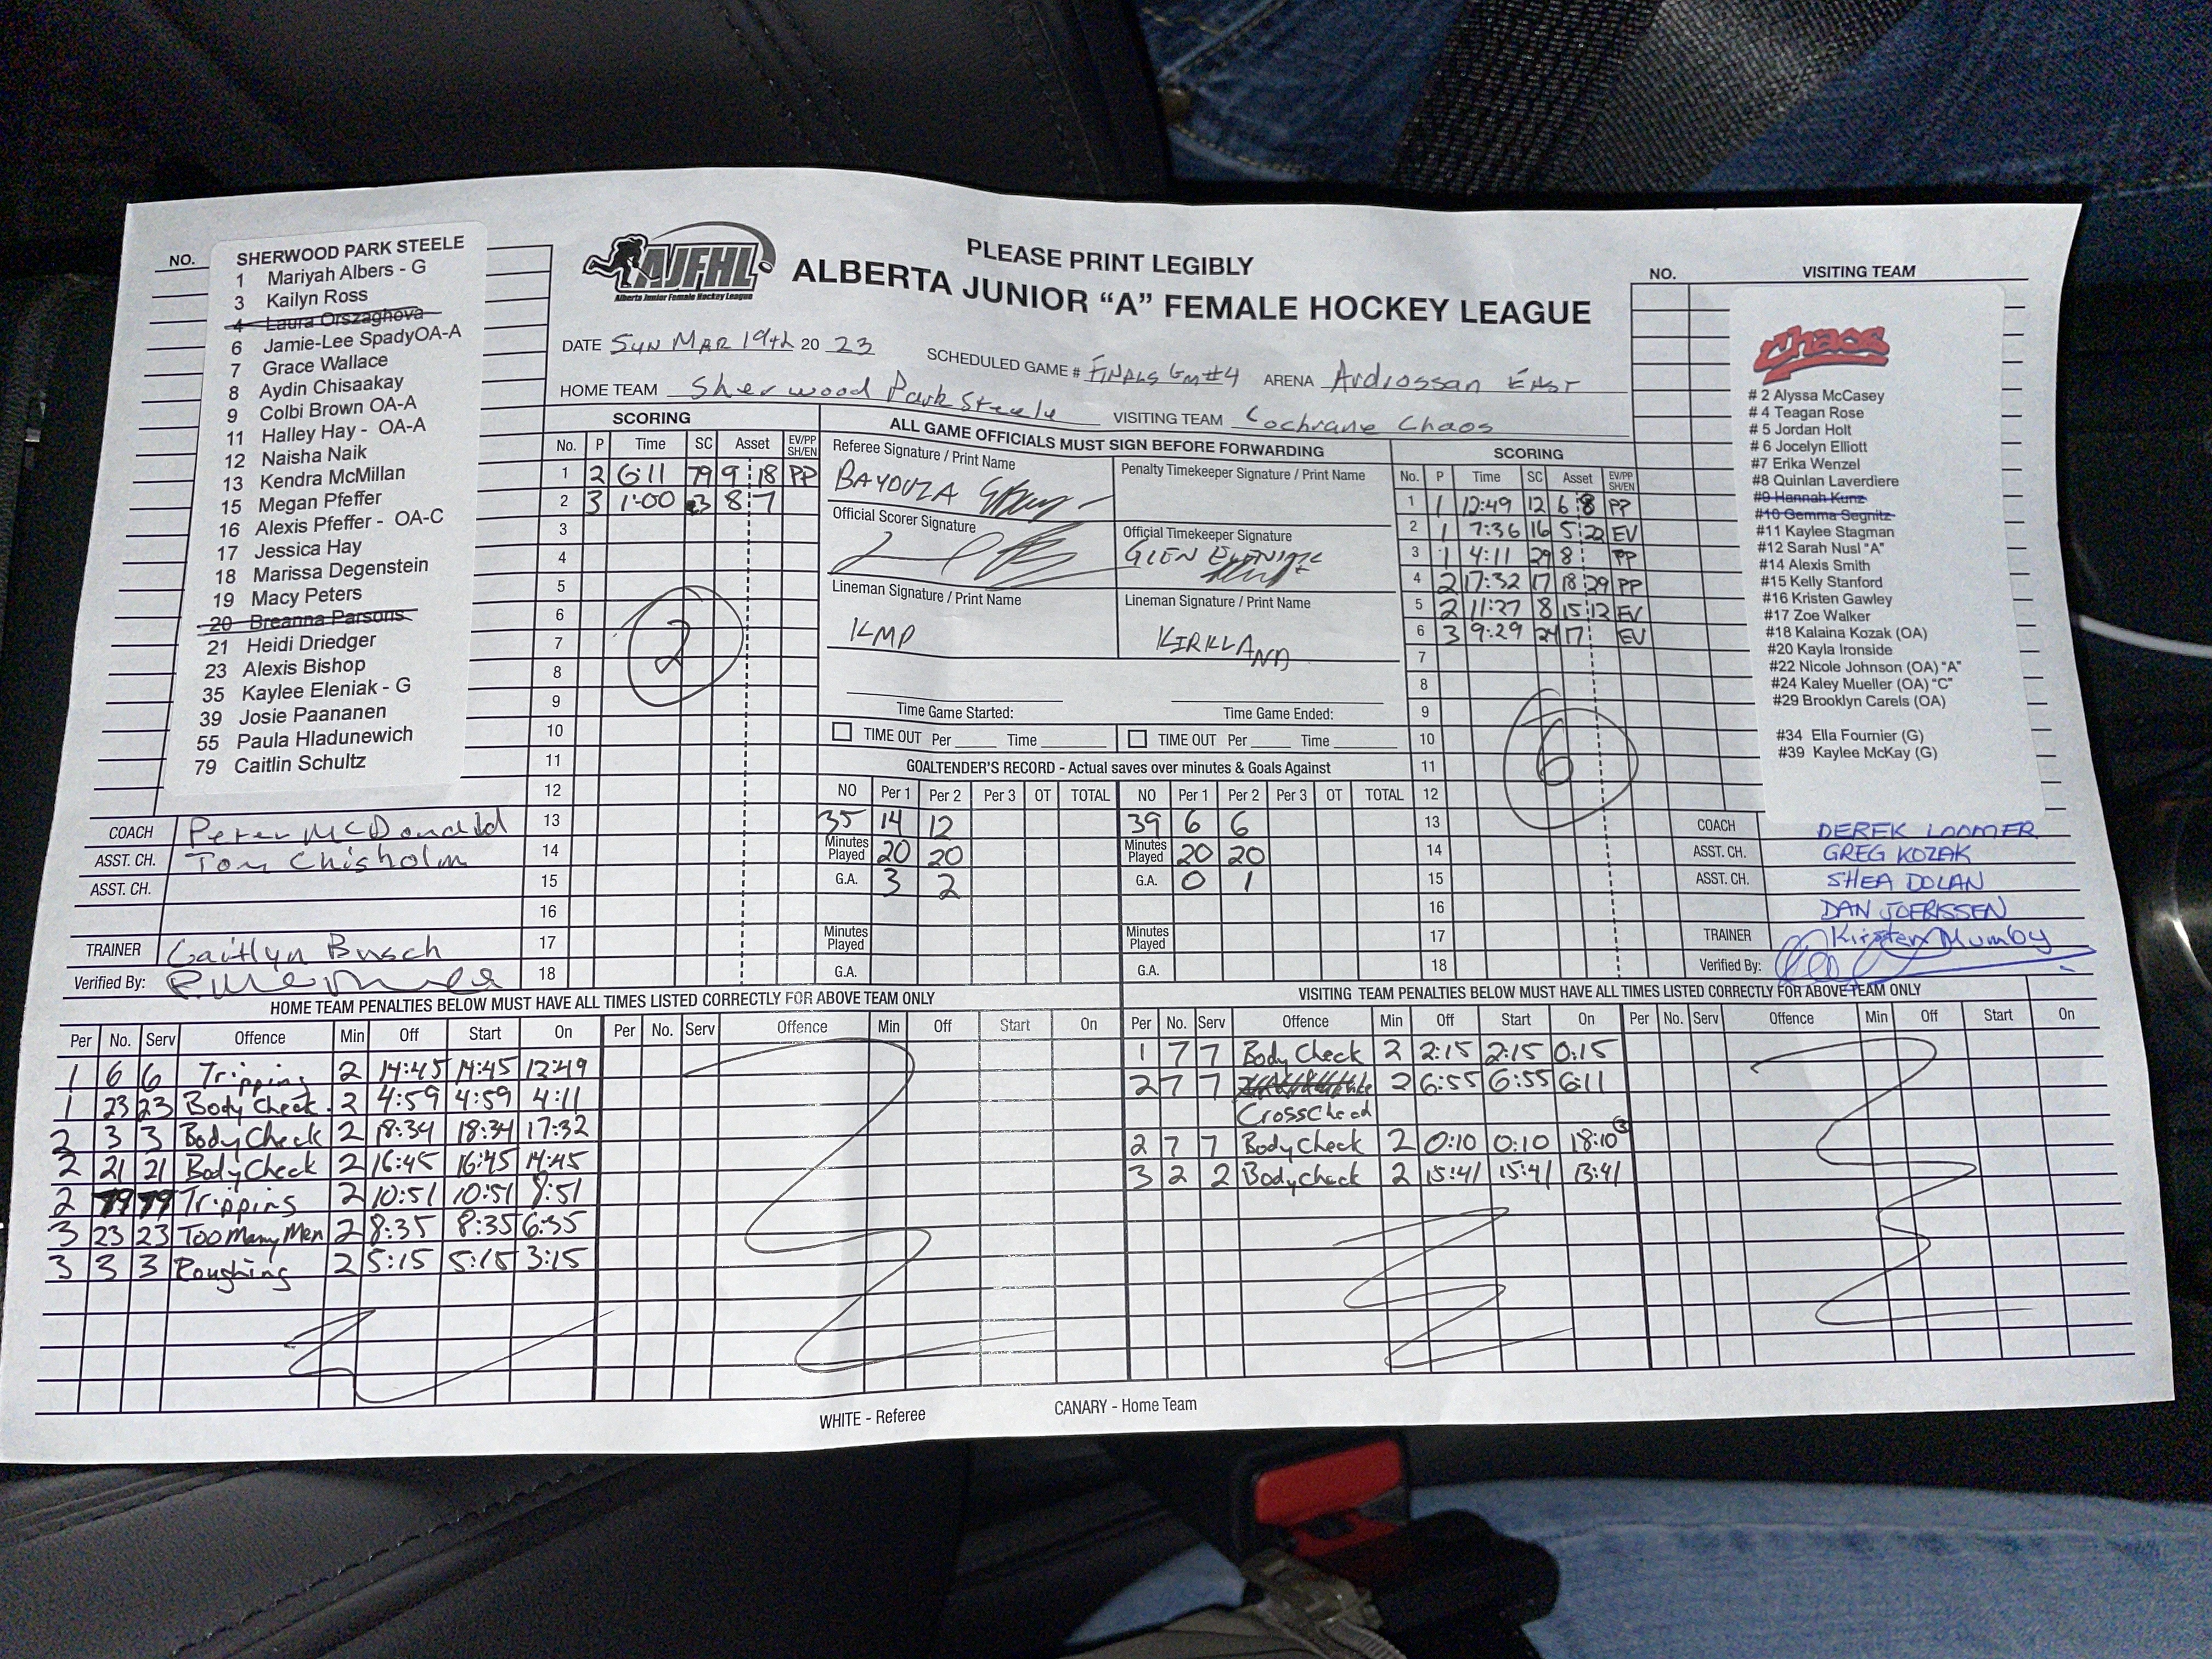 PLEASE PRINT LEGIBLY
AJFHL
Alberta Junior Female Hockey League
ALBERTA JUNIOR “A” FEMALE HOCKEY LEAGUE
DATE Sun Mar 19th 20 23 SCHEDULED GAME # Finals Gm #4 ARENA Ardrossan East
HOME TEAM Sherwood Park Steele VISITING TEAM Cochrane Chaos
NO.
SHERWOOD PARK STEELE
1 Mariyah Albers - G
3 Kailyn Ross
4 Laura Orszaghova
6 Jamie-Lee SpadyOA-A
7 Grace Wallace
8 Aydin Chisaakay
9 Colbi Brown OA-A
11 Halley Hay - OA-A
12 Naisha Naik
13 Kendra McMillan
15 Megan Pfeffer
16 Alexis Pfeffer - OA-C
17 Jessica Hay
18 Marissa Degenstein
19 Macy Peters
20 Breanna Parsons
21 Heidi Driedger
23 Alexis Bishop
35 Kaylee Eleniak - G
39 Josie Paananen
55 Paula Hladunewich
79 Caitlin Schultz
COACH Peter McDonald
ASST. CH. Tom Chisholm
ASST. CH.
TRAINER Caitlyn Busch
Verified By:
SCORING
No. P Time SC Asset EV/PP SH/EN
1 2 6:11 79 9 18 PP
2 3 1:00 3 8 7
3
4
5
6
7
8
9
10
11
12
13
14
15
16
17
18
2
ALL GAME OFFICIALS MUST SIGN BEFORE FORWARDING
Referee Signature / Print Name
BAYOUZA
Penalty Timekeeper Signature / Print Name
Official Scorer Signature
Official Timekeeper Signature
GLEN
Lineman Signature / Print Name
KMP
Lineman Signature / Print Name
KIRKLAND
Time Game Started: Time Game Ended:
TIME OUT Per Time TIME OUT Per Time
GOALTENDER'S RECORD - Actual saves over minutes & Goals Against
NO Per 1 Per 2 Per 3 OT TOTAL NO Per 1 Per 2 Per 3 OT TOTAL
35 14 12 39 6 6
Minutes Played 20 20 Minutes Played 20 20
G.A. 3 2 G.A. 0 1
Minutes Played Minutes Played
G.A. G.A.
SCORING
No. P Time SC Asset EV/PP SH/EN
1 1 12:49 12 6 8 PP
2 1 7:36 16 5 22 EV
3 1 4:11 29 8 PP
4 2 17:32 17 18 29 PP
5 2 11:27 8 15 12 EV
6 3 9:29 24 17 EV
7
8
9
10
11
12
13
14
15
16
17
18
6
NO. VISITING TEAM
Chaos
# 2 Alyssa McCasey
# 4 Teagan Rose
# 5 Jordan Holt
# 6 Jocelyn Elliott
#7 Erika Wenzel
#8 Quinlan Laverdiere
#9 Hannah Kunz
#10 Gemma Segnitz
#11 Kaylee Stagman
#12 Sarah Nusl "A"
#14 Alexis Smith
#15 Kelly Stanford
#16 Kristen Gawley
#17 Zoe Walker
#18 Kalaina Kozak (OA)
#20 Kayla Ironside
#22 Nicole Johnson (OA) "A"
#24 Kaley Mueller (OA) "C"
#29 Brooklyn Carels (OA)
#34 Ella Fournier (G)
#39 Kaylee McKay (G)
COACH DEREK LOOMER
ASST. CH. GREG KOZAK
ASST. CH. SHEA DOLAN
DAN JOERISSEN
TRAINER Kirsten Mumby
Verified By:
HOME TEAM PENALTIES BELOW MUST HAVE ALL TIMES LISTED CORRECTLY FOR ABOVE TEAM ONLY
Per No. Serv Offence Min Off Start On Per No. Serv Offence Min Off Start On
1 6 6 Tripping 2 14:45 14:45 12:49
1 23 23 Body Check 2 4:59 4:59 4:11
2 3 3 Body Check 2 18:34 18:34 17:32
2 21 21 Body Check 2 16:45 16:45 14:45
2 79 79 Tripping 2 10:51 10:51 8:51
3 23 23 Too Many Men 2 8:35 8:35 6:35
3 3 3 Roughing 2 5:15 5:15 3:15
VISITING TEAM PENALTIES BELOW MUST HAVE ALL TIMES LISTED CORRECTLY FOR ABOVE TEAM ONLY
Per No. Serv Offence Min Off Start On Per No. Serv Offence Min Off Start On
1 7 7 Body Check 2 2:15 2:15 0:15
2 7 7 2 6:55 6:55 6:11
Cross
2 7 7 Body Check 2 0:10 0:10 18:10 3
3 2 2 Body check 2 15:41 15:41 13:41
WHITE - Referee CANARY - Home Team